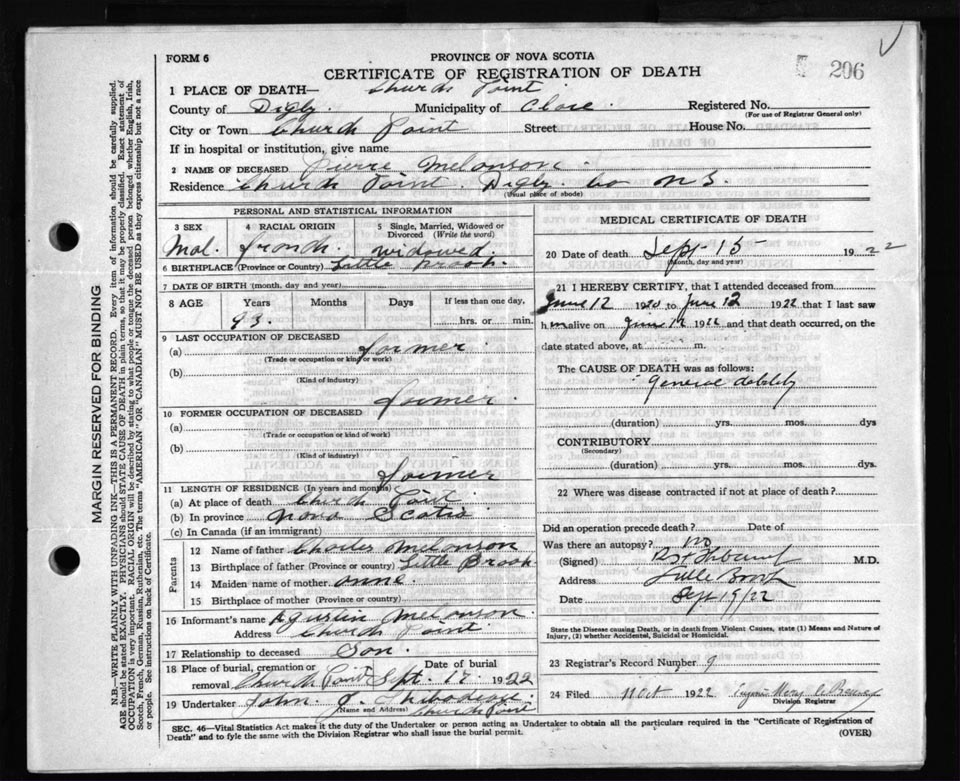 FORM 6
PROVINCE OF NOVA SCOTIA
206
CERTIFICATE OF REGISTRATION OF DEATH
1 PLACE OF DEATH— Church Point
County of Digby. Municipality of Clare. Registered No.
(For use of Registrar General only)
City or Town Church Point Street House No.
If in hospital or institution, give name
2 NAME OF DECEASED Pierre Melonson.
Residence Church Point. Digby Co N S.
(Usual place of abode)
PERSONAL AND STATISTICAL INFORMATION
3 SEX 4 RACIAL ORIGIN 5 Single, Married, Widowed or Divorced (Write the word)
Mal. french. widowed.
6 BIRTHPLACE (Province or Country) Little Brook.
7 DATE OF BIRTH (month, day and year)
8 AGE Years Months Days If less than one day,
93. hrs. or min.
9 LAST OCCUPATION OF DECEASED
(a) former.
(Trade or occupation or kind of work)
(b)
(Kind of industry)
former.
10 FORMER OCCUPATION OF DECEASED
(a)
(Trade or occupation or kind of work)
(b)
(Kind of industry)
former
11 LENGTH OF RESIDENCE (In years and months)
(a) At place of death Church Point
(b) In province Nova Scotia
(c) In Canada (if an immigrant)
Parents
12 Name of father Charles Melonson
13 Birthplace of father (Province or country) Little Brook
14 Maiden name of mother anne.
15 Birthplace of mother (Province or country)
16 Informant's name Agustin Melonson.
Address Church Point.
17 Relationship to deceased Son.
18 Place of burial, cremation or removal Church Point Date of burial Sept. 17 1922
19 Undertaker John J. Thibodeau
(Name and Address) Church Point
MEDICAL CERTIFICATE OF DEATH
20 Date of death Sept- 15 1922
(Month, day and year)
21 I HEREBY CERTIFY, that I attended deceased from
June 12 1920 to June 12 1922 that I last saw
h m alive on June 12 1922 and that death occurred, on the
date stated above, at m.
The CAUSE OF DEATH was as follows:
General debility
(duration) yrs. mos. dys
CONTRIBUTORY
(Secondary)
(duration) yrs. mos. dys.
22 Where was disease contracted if not at place of death?
Did an operation precede death? Date of
Was there an autopsy? no
(Signed) M.D.
Address Little Brook
Date Sept 19/22
State the Disease causing Death, or in death from Violent Causes, state (1) Means and Nature of
Injury, (2) whether Accidental, Suicidal or Homicidal.
23 Registrar's Record Number 9
24 Filed Oct 1922
Division Registrar
SEC. 46—Vital Statistics Act makes it the duty of the Undertaker or person acting as Undertaker to obtain all the particulars required in the "Certificate of Registration of
Death" and to fyle the same with the Division Registrar who shall issue the burial permit.
(OVER)
MARGIN RESERVED FOR BINDING
N.B.—WRITE PLAINLY WITH UNFADING INK—THIS IS A PERMANENT RECORD. Every item of information should be carefully supplied.
AGE should be stated EXACTLY. PHYSICIANS should STATE CAUSE OF DEATH in plain terms, so that it may be properly classified. Exact statement of
OCCUPATION is very important. RACIAL ORIGIN will be described by stating to what people or tongue the deceased person belonged whether English, Irish,
Scotch, French, German, Russian, Ruthenian, etc. The terms "AMERICAN" OR "CANADIAN" MUST NOT BE USED as they express citizenship but not a race
or people. See instructions on back of Certificate.